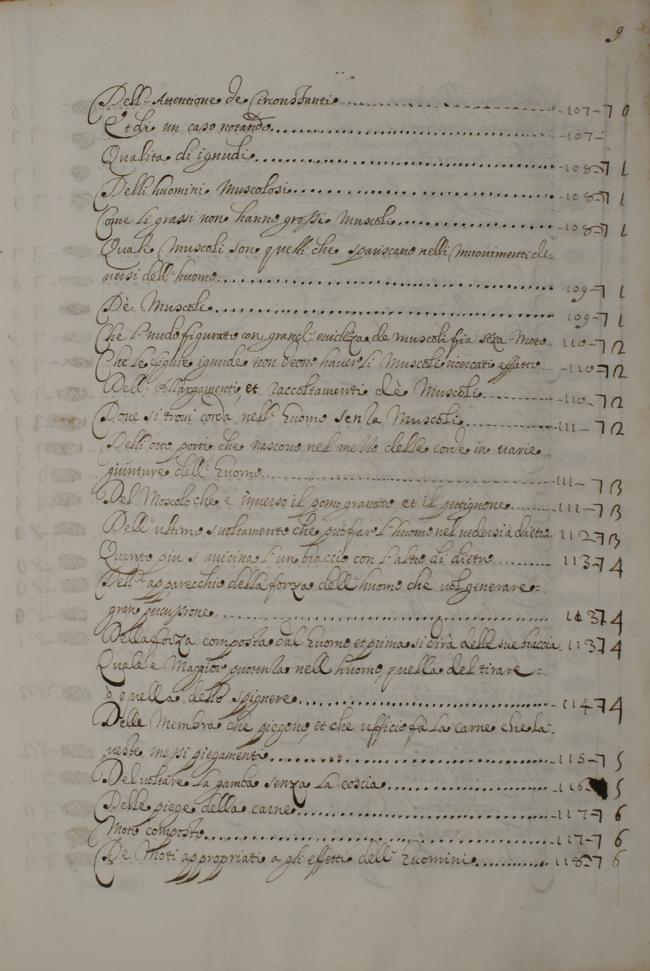 9
Dell' Attentione de Circonstanti ........ 107-70
Et di un caso notando ........ 107-
Qualita di ignudi ........ 108-71
Delli huomini Muscolosi ........ 108-71
Come li grassi non hanno grossi Muscoli ........ 108-71
Quali Muscoli son quelli che spariscano nelli Muovimenti di-
versi dell' huomo ........ 109-71
Dè Muscoli ........ 109-71
Che l'nudo figurato con grand' evideza de muscoli fia seza Moto 110-72
Che le figure ignude non deono haver li Muscoli ricercati affatto 110-72
Dell' Allargamenti et raccoltamenti dè Muscoli ........ 110-72
Dove si trovi corda nell' huomo senza Muscoli ........ 111-72
Delli otto pezzi che nascono nel mezzo delle corde in varie
giunture dell' huomo ........ 111-73
Del Moscolo che è inverso il pomo granato et il pettignone ........ 111-73
Dell' ultimo svoltamento che puo far l'huomo nel vedersi à dietro 112-73
Quanto piu s avicina l'un braccio con l'altro di dietro ........ 113-74
Dell' apparecchio della forza dell' huomo che vol generare
gran percussione ........ 113-74
Della forza composta dal huomo et prima si dirà delle sue braccia 113-74
Quale è Maggior potenza nell huomo, quella del tirare
ò quella dello spignere ........ 114-74
Delle Membra che piegono, et che ufficio fa la carne che la
veste ne ssi piegamenti ........ 115-75
Del voltare la gamba senza la coscia ........ 116-75
Delle piege della carne ........ 117-76
Moto composto ........ 117-76
De Moti appropriati a gli effetti dell' huomini ........ 118-76